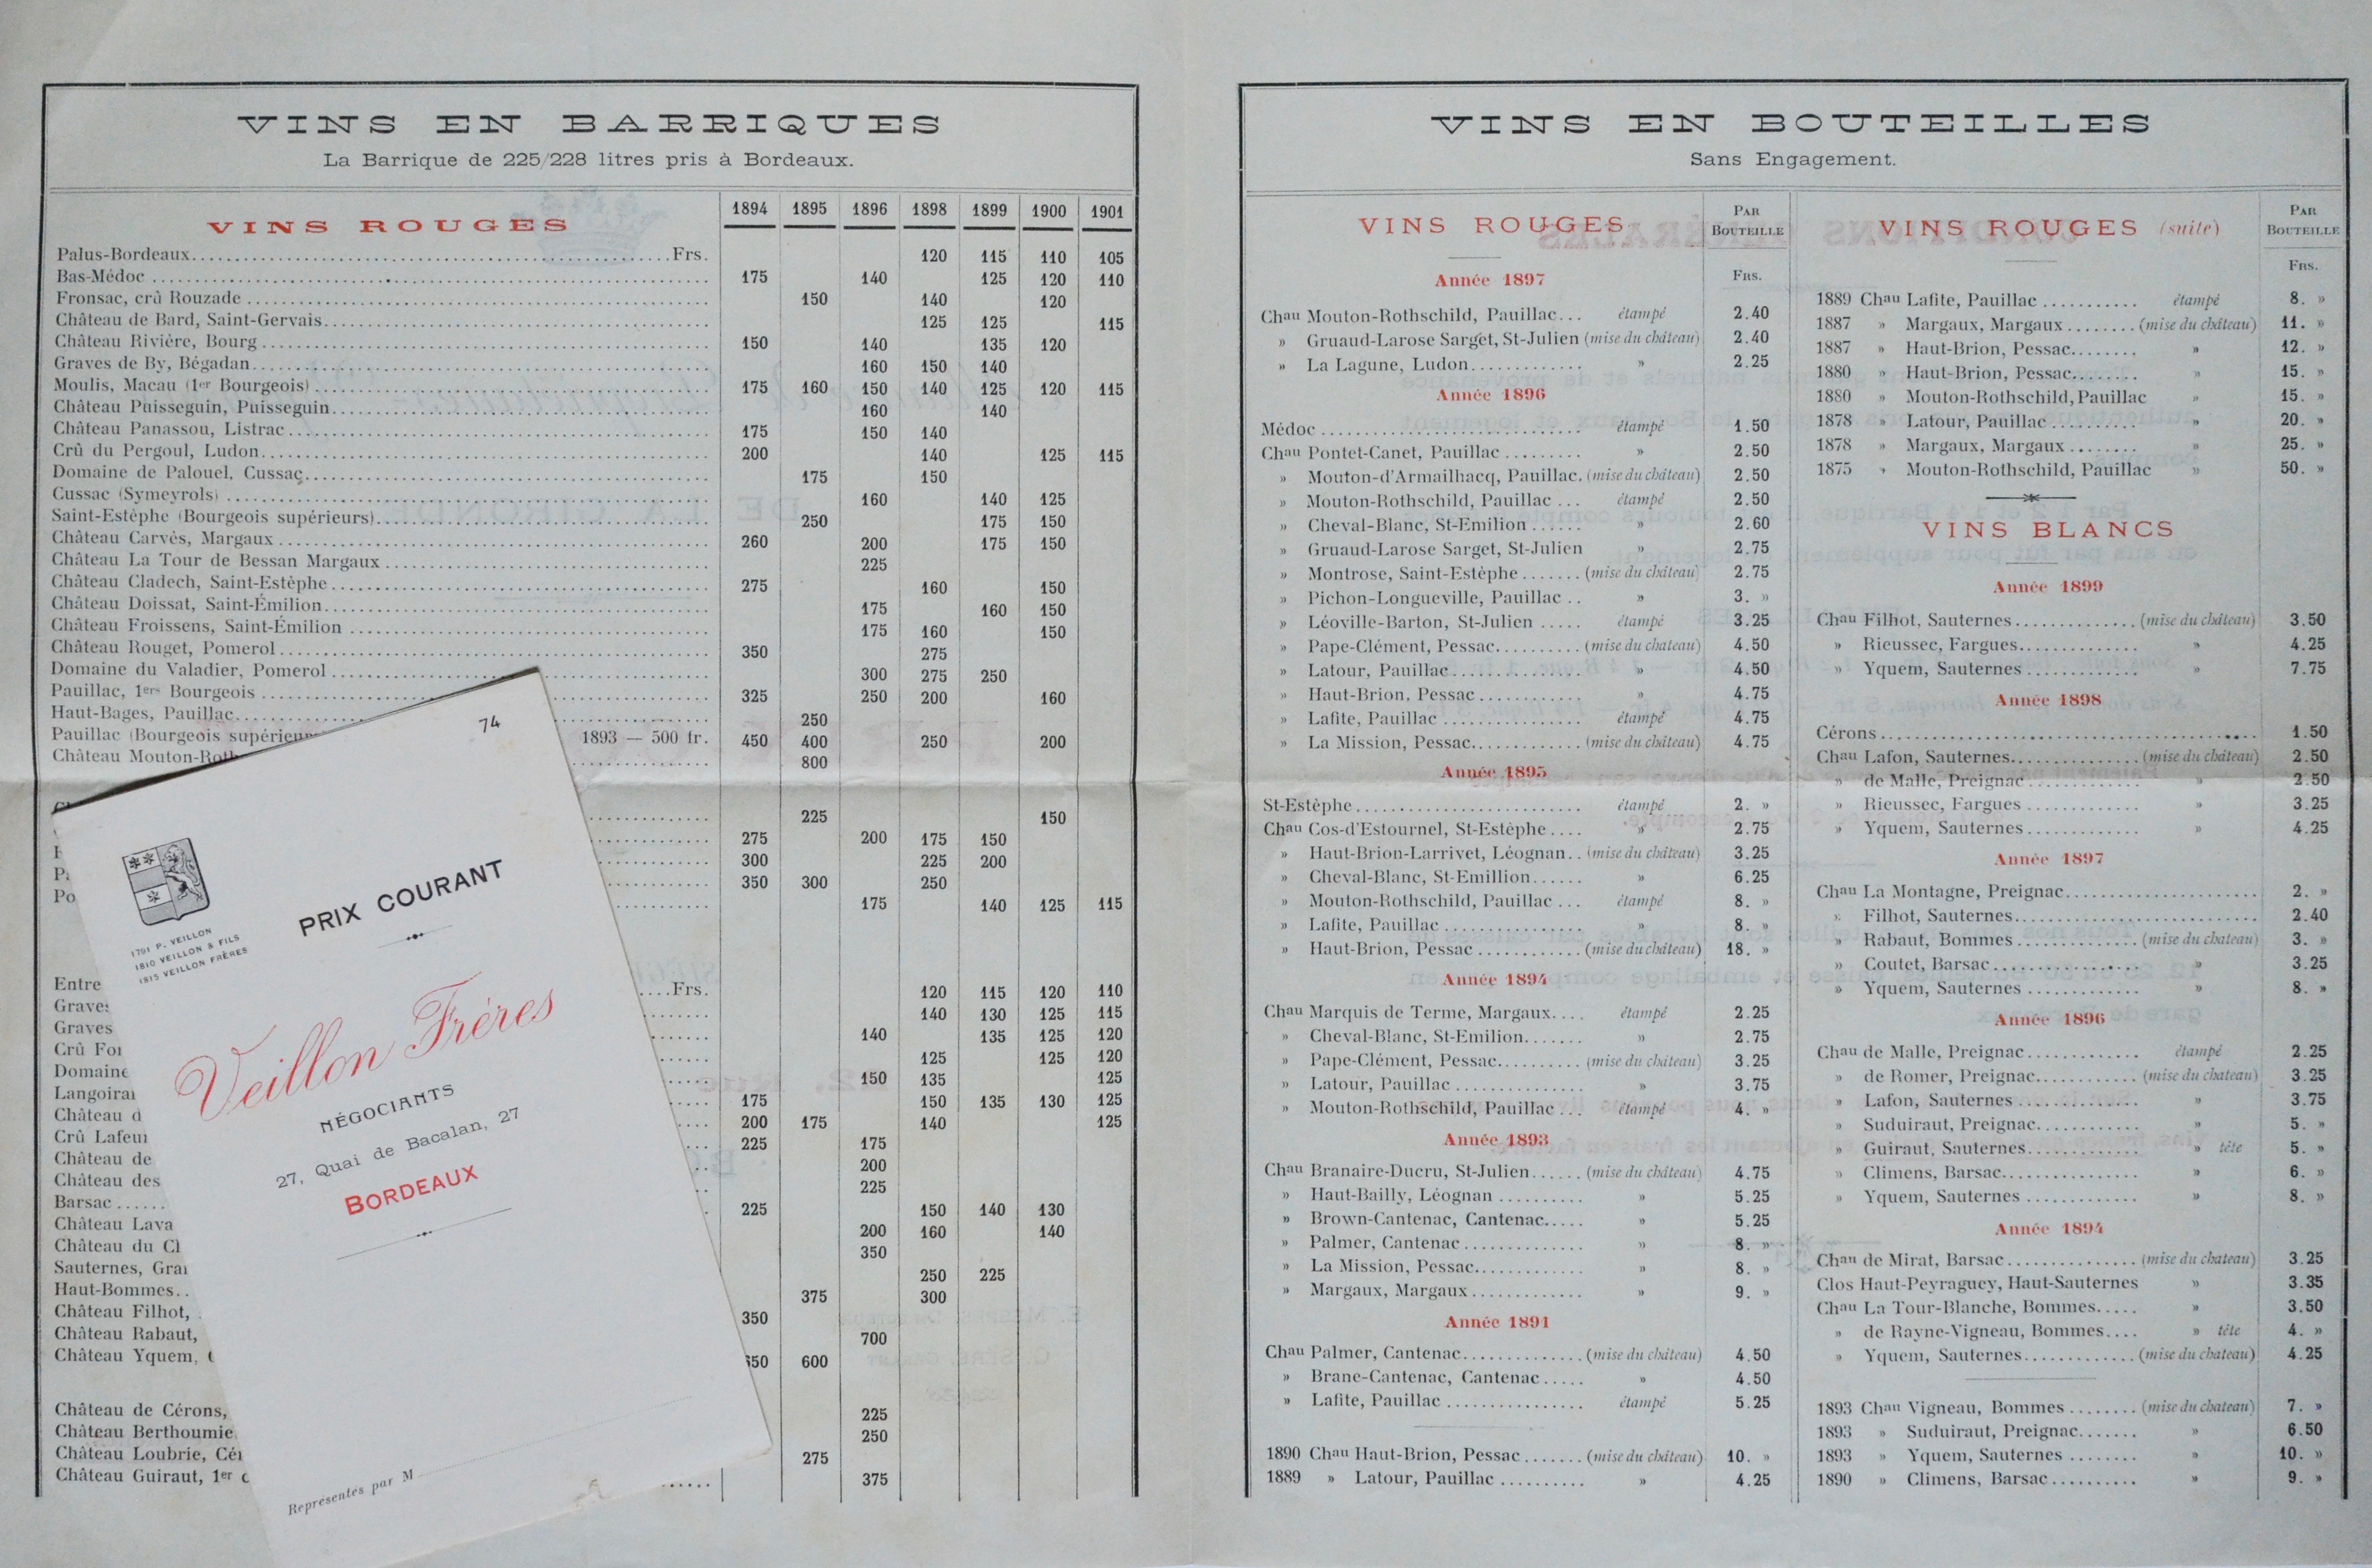 VINS EN BARRIQUES
La Barrique de 225/228 litres pris à Bordeaux.
VINS ROUGES 1894 1895 1896 1898 1899 1900 1901
Palus-Bordeaux Frs. 120 115 110 105
Bas-Médoc 175 140 125 120 110
Fronsac, crû Rouzade 150 140 120
Château de Bard, Saint-Gervais 125 125 115
Château Rivière, Bourg 150 140 135 120
Graves de By, Bégadan 160 150 140
Moulis, Macau (1er Bourgeois) 175 160 150 140 125 120 115
Château Puisseguin, Puisseguin 160 140
Château Panassou, Listrac 175 150 140
Crû du Pergoul, Ludon 200 140 125 115
Domaine de Palouel, Cussac 175 150
Cussac (Symeyrols) 160 140 125
Saint-Estèphe (Bourgeois supérieurs) 250 175 150
Château Carvès, Margaux 260 200 175 150
Château La Tour de Bessan Margaux 225
Château Cladech, Saint-Estèphe 275 160 150
Château Doissat, Saint-Émilion 175 160 150
Château Froissens, Saint-Émilion 175 160 150
Château Rouget, Pomerol 350 275
Domaine du Valadier, Pomerol 300 275 250
Pauillac, 1ers Bourgeois 325 250 200 160
Haut-Bages, Pauillac 250
Pauillac (Bourgeois supérieurs 1893 — 500 fr. 450 400 250 200
Château Mouton-Roth 800
225 150
275 200 175 150
300 225 200
Po 350 300 250
175 140 125 115
Entre Frs. 120 115 120 110
Graves 140 130 125 115
Graves 140 135 125 120
Crû For 125 125 120
Domaine 150 135 125
Langoiran 175 150 135 130 125
Château d 200 175 140 125
Crû Lafeur 225 175
Château de 200
Château des 225
Barsac 225 150 140 130
Château Lava 200 160 140
Château du Cl 350
Sauternes, Gra 250 225
Haut-Bommes 375 300
Château Filhot, 350
Château Rabaut, 700
Château Yquem, 50 600
Château de Cérons, 225
Château Berthoumie 250
Château Loubrie, Cér 275
Château Guiraut, 1er c 375
74
1791 P. VEILLON
1810 VEILLON & FILS
1815 VEILLON FRÈRES
PRIX COURANT
Veillon Frères
NÉGOCIANTS
27, Quai de Bacalan, 27
BORDEAUX
Représentés par M
VINS EN BOUTEILLES
Sans Engagement.
VINS ROUGES PAR BOUTEILLE
Année 1897 FRS.
Chau Mouton-Rothschild, Pauillac... étampé 2.40
» Gruaud-Larose Sarget, St-Julien (mise du château) 2.40
» La Lagune, Ludon » 2.25
Année 1896
Médoc étampé 1.50
Chau Pontet-Canet, Pauillac » 2.50
» Mouton-d'Armailhacq, Pauillac. (mise du château) 2.50
» Mouton-Rothschild, Pauillac ... étampé 2.50
» Cheval-Blanc, St-Emilion » 2.60
» Gruaud-Larose Sarget, St-Julien » 2.75
» Montrose, Saint-Estèphe (mise du château) 2.75
» Pichon-Longueville, Pauillac .. » 3. »
» Léoville-Barton, St-Julien étampé 3.25
» Pape-Clément, Pessac (mise du chateau) 4.50
» Latour, Pauillac » 4.50
» Haut-Brion, Pessac » 4.75
» Lafite, Pauillac étampé 4.75
» La Mission, Pessac (mise du château) 4.75
Année 1895
St-Estèphe étampé 2. »
Chau Cos-d'Estournel, St-Estèphe » 2.75
» Haut-Brion-Larrivet, Léognan.. (mise du château) 3.25
» Cheval-Blanc, St-Emillion » 6.25
» Mouton-Rothschild, Pauillac ... étampé 8. »
» Lafite, Pauillac » 8. »
» Haut-Brion, Pessac (mise du château) 18. »
Année 1894
Chau Marquis de Terme, Margaux étampé 2.25
» Cheval-Blanc, St-Emilion » 2.75
» Pape-Clément, Pessac (mise du château) 3.25
» Latour, Pauillac » 3.75
» Mouton-Rothschild, Pauillac ... étampé 4. »
Année 1893
Chau Branaire-Ducru, St-Julien (mise du château) 4.75
» Haut-Bailly, Léognan » 5.25
» Brown-Cantenac, Cantenac » 5.25
» Palmer, Cantenac » 8. »
» La Mission, Pessac » 8. »
» Margaux, Margaux » 9. »
Année 1891
Chau Palmer, Cantenac (mise du château) 4.50
» Brane-Cantenac, Cantenac » 4.50
» Lafite, Pauillac étampé 5.25
1890 Chau Haut-Brion, Pessac (mise du château) 10. »
1889 » Latour, Pauillac » 4.25
VINS ROUGES (suite) PAR BOUTEILLE
FRS.
1889 Chau Lafite, Pauillac étampé 8. »
1887 » Margaux, Margaux (mise du château) 11. »
1887 » Haut-Brion, Pessac » 12. »
1880 » Haut-Brion, Pessac » 15. »
1880 » Mouton-Rothschild, Pauillac » 15. »
1878 » Latour, Pauillac » 20. »
1878 » Margaux, Margaux » 25. »
1875 » Mouton-Rothschild, Pauillac » 50. »
VINS BLANCS
Année 1899
Chau Filhot, Sauternes (mise du château) 3.50
» Rieussec, Fargues » 4.25
» Yquem, Sauternes » 7.75
Année 1898
Cérons 1.50
Chau Lafon, Sauternes (mise du château) 2.50
» de Malle, Preignac » 2.50
» Rieussec, Fargues » 3.25
» Yquem, Sauternes » 4.25
Année 1897
Chau La Montagne, Preignac 2. »
» Filhot, Sauternes 2.40
» Rabaut, Bommes (mise du chateau) 3. »
» Coutet, Barsac » 3.25
» Yquem, Sauternes » 8. »
Année 1896
Chau de Malle, Preignac étampé 2.25
» de Romer, Preignac (mise du chateau) 3.25
» Lafon, Sauternes » 3.75
» Suduiraut, Preignac » 5. »
» Guiraut, Sauternes » tête 5. »
» Climens, Barsac » 6. »
» Yquem, Sauternes » 8. »
Année 1894
Chau de Mirat, Barsac (mise du chateau) 3.25
Clos Haut-Peyraguey, Haut-Sauternes » 3.35
Chau La Tour-Blanche, Bommes » 3.50
» de Rayne-Vigneau, Bommes » tête 4. »
» Yquem, Sauternes (mise du chateau) 4.25
1893 Chau Vigneau, Bommes (mise du chateau) 7. »
1893 » Suduiraut, Preignac » 6.50
1893 » Yquem, Sauternes » 10. »
1890 » Climens, Barsac » 9. »